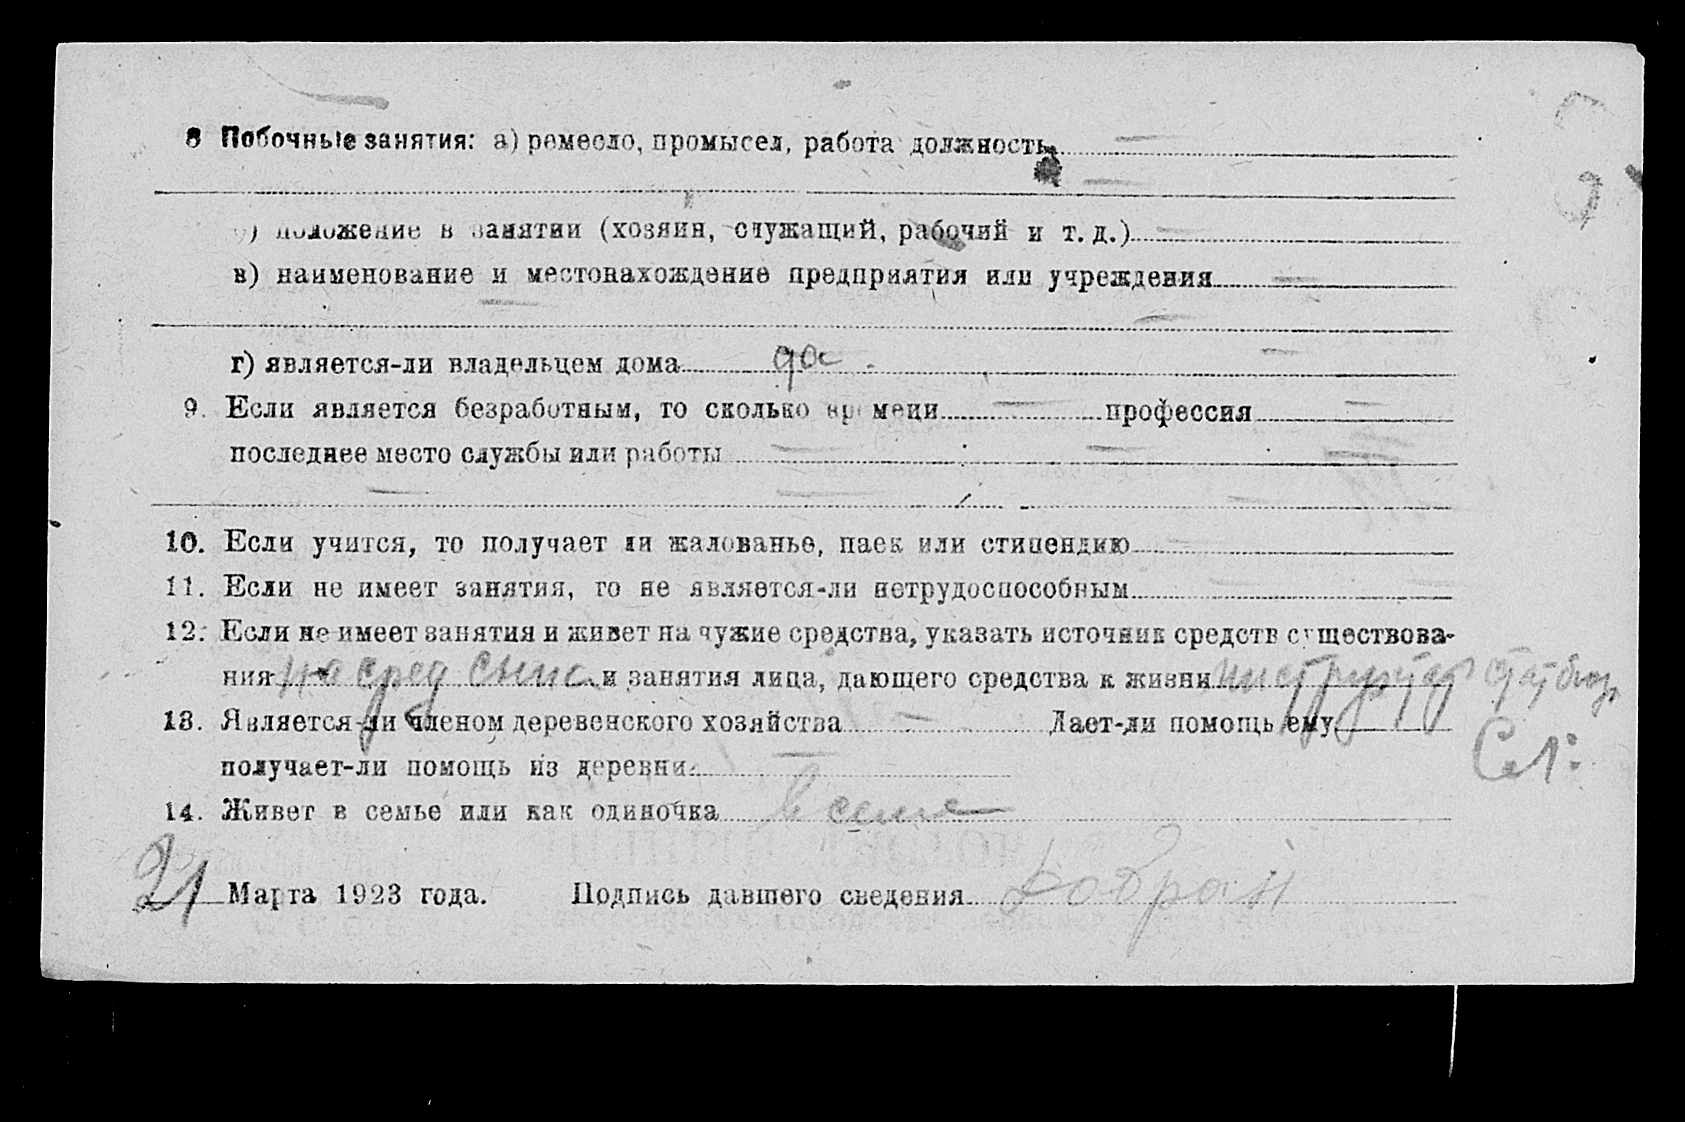 8 Побочные занятия: а) ремесло, промысел, работа должность
б) положение в занятии (хозяин, служащий, рабочий и т. д.)
в) наименование и местонахождение предприятия или учреждения
г) является-ли владельцем дома да.
9. Если является безработным, то сколько времени профессия
последнее место службы или работы
10. Если учится, то получает ли жалованье, паек или стипендию
11. Если не имеет занятия, то не является-ли нетрудоспособным
12. Если не имеет занятия и живет на чужие средства, указать источник средств существова-
ния на сред сына и занятия лица, дающего средства к жизни инструктор стат бюр
13. Является-ли членом деревенского хозяйства Дает-ли помощь ему
получает-ли помощь из деревни
14. Живет в семье или как одиночка В семье
21 Марта 1923 года. Подпись давшего сведения